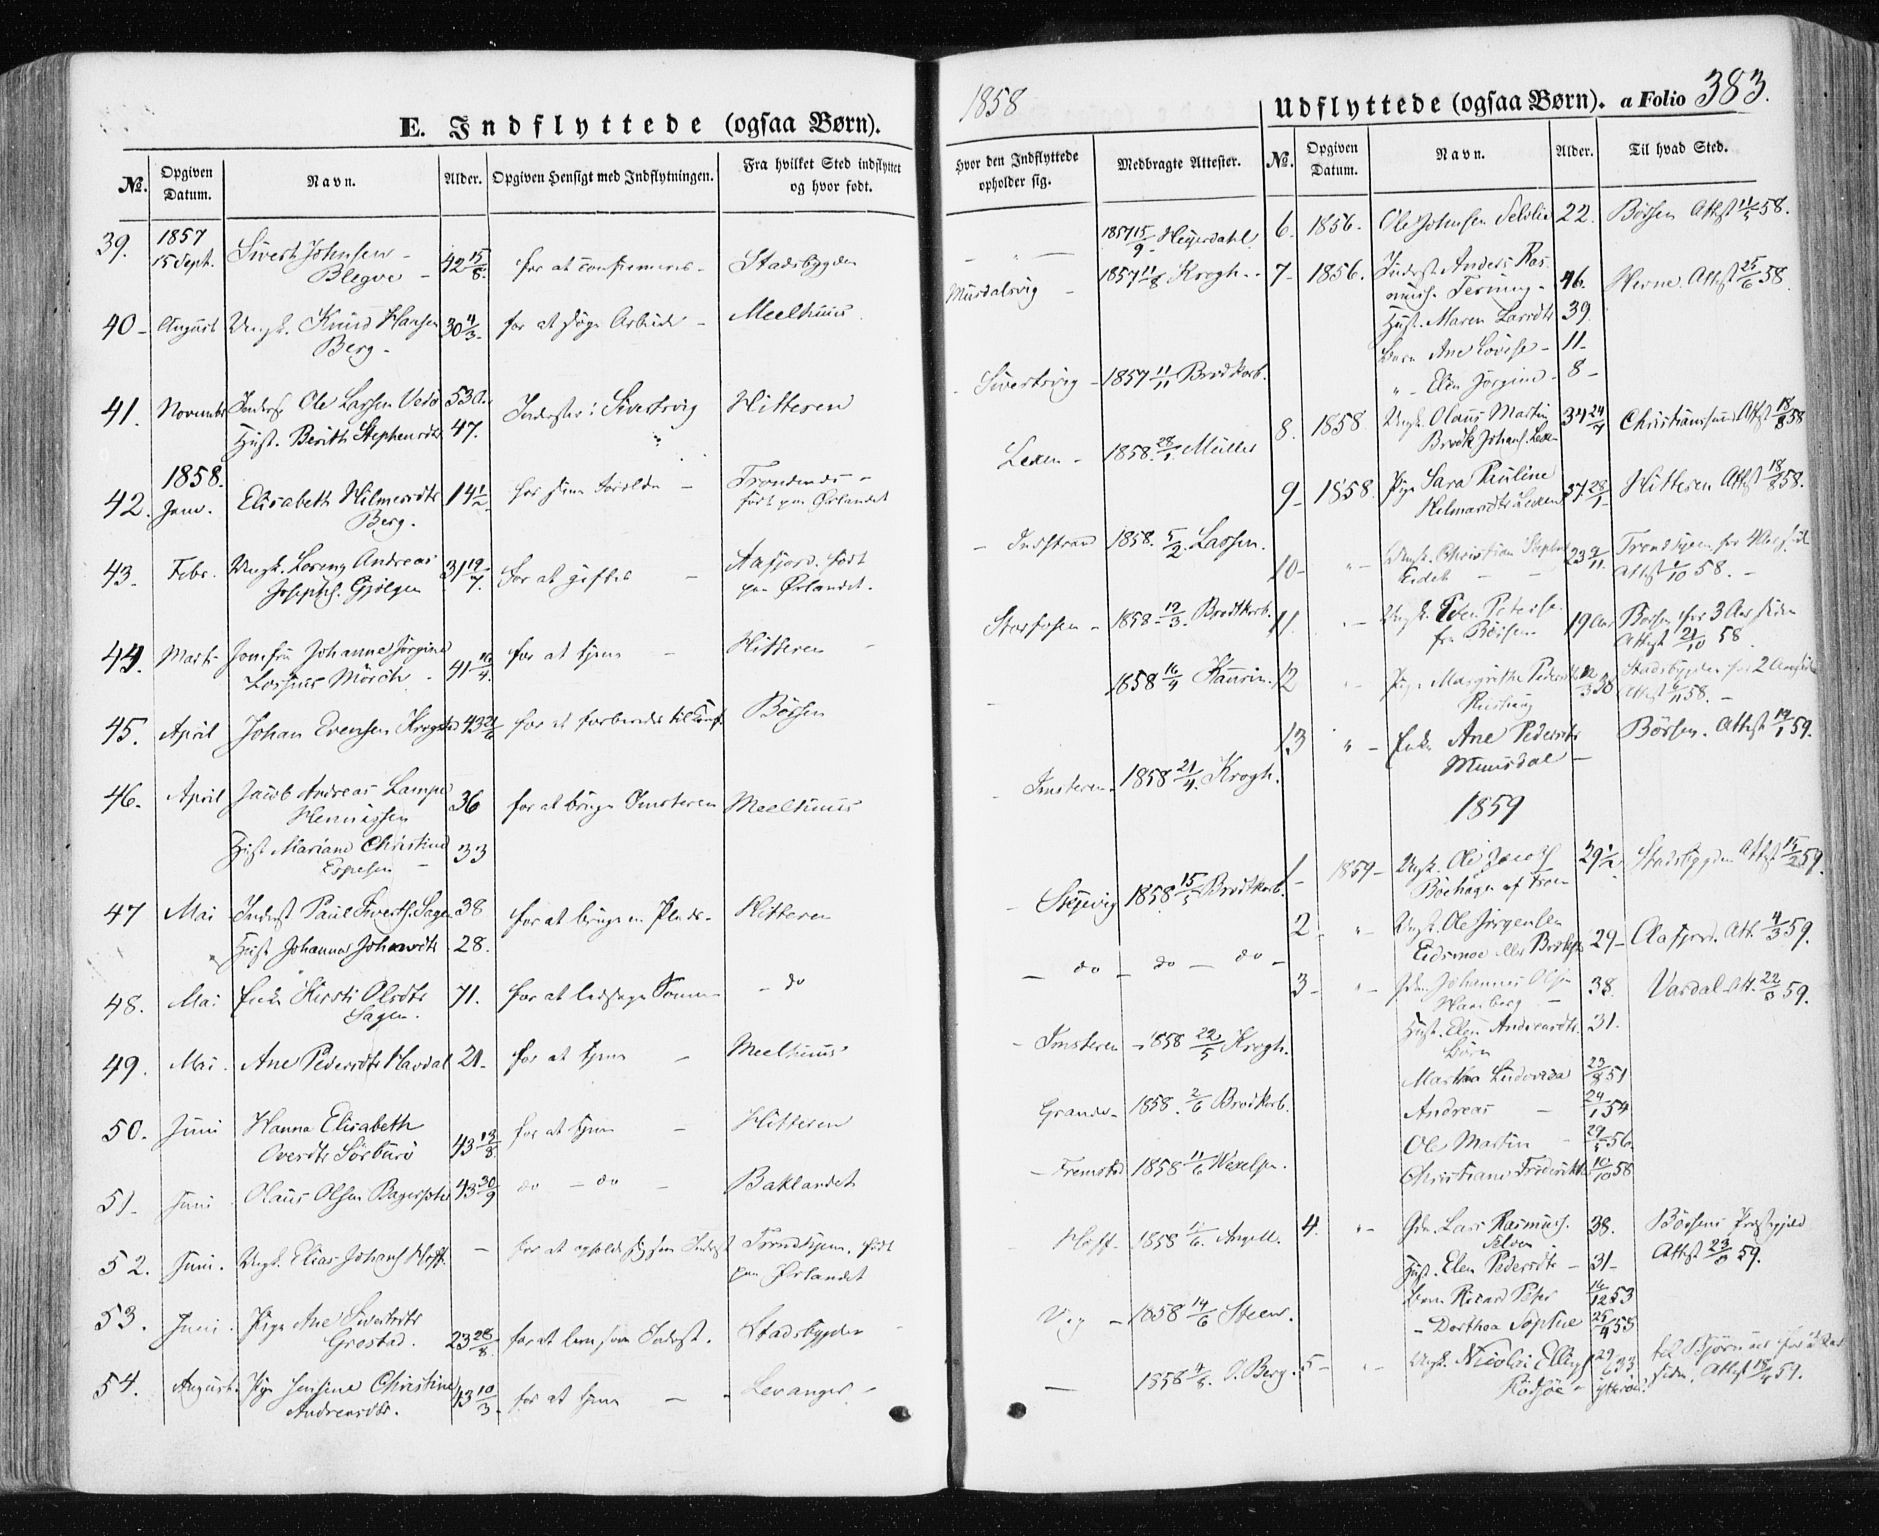 E. Indflyttede (ogsaa Børn).
№.
Opgiven Datum.
Navn.
Alder.
Opgiven Hensigt med Indflytningen.
Fra hvilket Sted indflyttet og hvor født.
39. 1857 15 Sept. Sivert Johnsen Blegve - 42 15/8. for at confirmeres - Stadsbygden
40 - August Ungk. Knud Hansen Berg - 30 4/3. for at søge Arbeide - Meelhuus
41. November Inderst Ole Larsen 53 A. Inderster i Sivertsvig Hitteren
Hust. Berith Stephensdtr 47.
1858.
42. Janv. Elisabeth Hilmersdtr Berg. 14 1/2. født paa Ørlandet
43. Febr. Ungk. Lorenz Andreas Josephs. Gjölgen 31 19/7. for at giftes - Aafjord. født paa Ørlandet.
44. Marts Jomfru Johanne Jörgine Mörch. 41 16/4. for at tjene - Hitteren
45. April Johan Evensen 43 for at forberedes til Conf. Børsen
46. April Jacob Andreas Lampe Henrigsen 36 for at bruge Imsteren Meelhuus
Hust Mariane Christine Espesen - 33
47 Mai Inderst Paul Siverts. Sagen 38 for at bruge en Plads - Hitteren
Hust Johanna 28.
48. Mai Enke Kirsti Olsdtr Sagen. 71. for at ledsage Sønnen - do
49. Mai. Ane Pedersdtr Havdal 21. for at tjene - Meelhuus
50. Juni Hanna Elisabeth 43 13/8. for at tjene - Hitteren
51 - Juni Olaus Olsen 43 30/9 do - do - Baklandet
52. Juni. Ungk. Elias Johans Hoff. - for at opholde sig som Inderst Trondhjem. født paa Ørlandet
53. Juni. Pige Ane Sivertsdtr Grøstad. 23 28/8. for at leve som Inderst. Stadsbygden
54. August. Pige Jensine Christine Andreasdtr. 43 10/3. for at tjene - Levanger -
1858
Udflyttede (ogsaa Børn). a Folio 383.
Hvor den Indflyttede opholder sig.
Medbragte Attester.
№.
Opgiven Datum.
Navn.
Alder.
Til hvad Sted.
- " - 1857 15/9 - Heyerdahl.
Musdalsvig - 1857 11/8 Krogh.
Sivertsvig - 1857 11/11 Brodtkorb.
Lexen - 1858. 28/1. Müller
- Indstrand 1858. 5/2. Lassen.
Storfosen - 1858. 19/3. Brodtkorb.
- 1858 16/4 Kaurin.
- Imsteren. 1858 21/4. Krogh.
- 1858 15/5 Brodtkorb.
- do - do - do -
- Imsteren - 1858 22/5 Krogh.
Grande - 1858. 2/6 Brodtkorb.
- Fremstad 1858 11/6 Wexelsen.
- Hoff. 1858 Angell.
- Vig - 1858 14/6 Steen.
- 1858 4/8. O. Berg.
6. 1856. Ole Johnsen Selvlie 22. Børsen Attest 11/5 58.
7 - 1856. Inderst. Anders Rasmus. Terning - 46. Herne. Attest 25/6 58
Hust. Maren Larsdtr 39
Børn Ane Lovise - 11 -
" - Elen Jørgine - 8 -
8. 1858. Ungk. Olaus Martin Brodtk Johans. Lexen 34 24/7 Christianssund Attest 18/8 58
9 - 1858. Pige Sara Pauline Helmersdtr Lexen 37 28/1 - Hitteren Attest 18/8 58.
10 - " - Ungk. Christian Eideb - 23 9/11. Trondhjem Attest 1/10 58. -
11. " - Ungk. Peter Petersen fra Børsen 19 Aar Børsen for 3 Aar siden Attest 21/10 58.
12 " - Pige Margrethe Pedersdtr Stadsbygden for 2 Aar siden 58. -
13 " - Enke Ane Pedersdtr Muusdal - Børsen. Attest 14/1 59.
1859
1 - 1859 - Ungk. Ole Jacobs Böehagn 29 1/2. Stadsbygden Attest 15/2 59.
2 - " - Ungk. Ole Jørgensen Eidsmoe 29 - Aafjord. Att. 4/3 59.
3 - " - Johannes Olsen Hamberg - 38. Vardal. Att. 22/3 59.
Hust. Elen Andreasdtr 31.
Børn
Martha Ludovica 23/8 51
Andreas - 24/1 54
Ole Martin - 29/5 56.
Christiane Frederikke 10/10 58
4. " - Gdm. Lars Rasmus. Selven 38. Børsens Præstegjeld Attest 23/3 59.
Hust. Elen Pedersdtr - 31 -
Børn Ricard Peter 16/12 53
- Dorthea Sophie 25/4 55
5 - " - Ungk. Nicolai Ellings Rödsjöe - 29/6 33 siden. Attest 18/4 59.